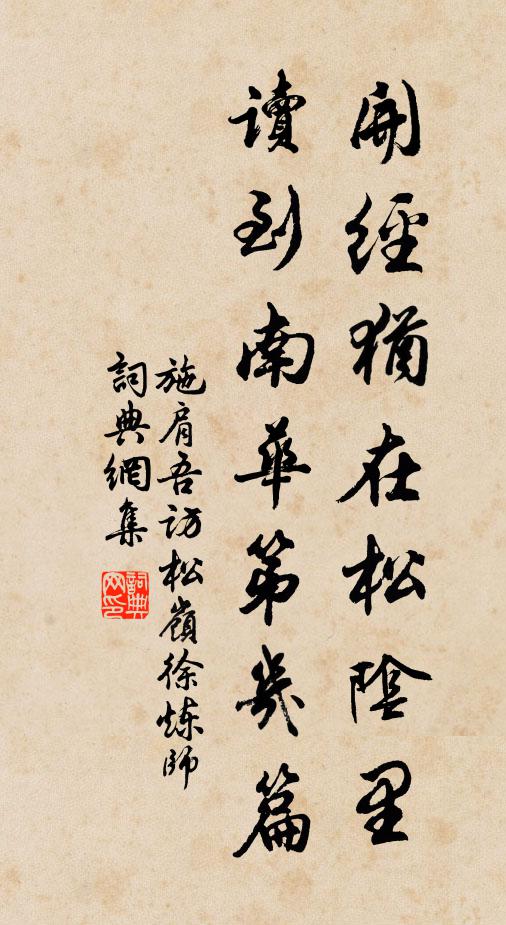 開經猶在松陰里
讀到南華第幾篇
施肩吾訪松嶺徐煉師
詞典網集
詞典
网印